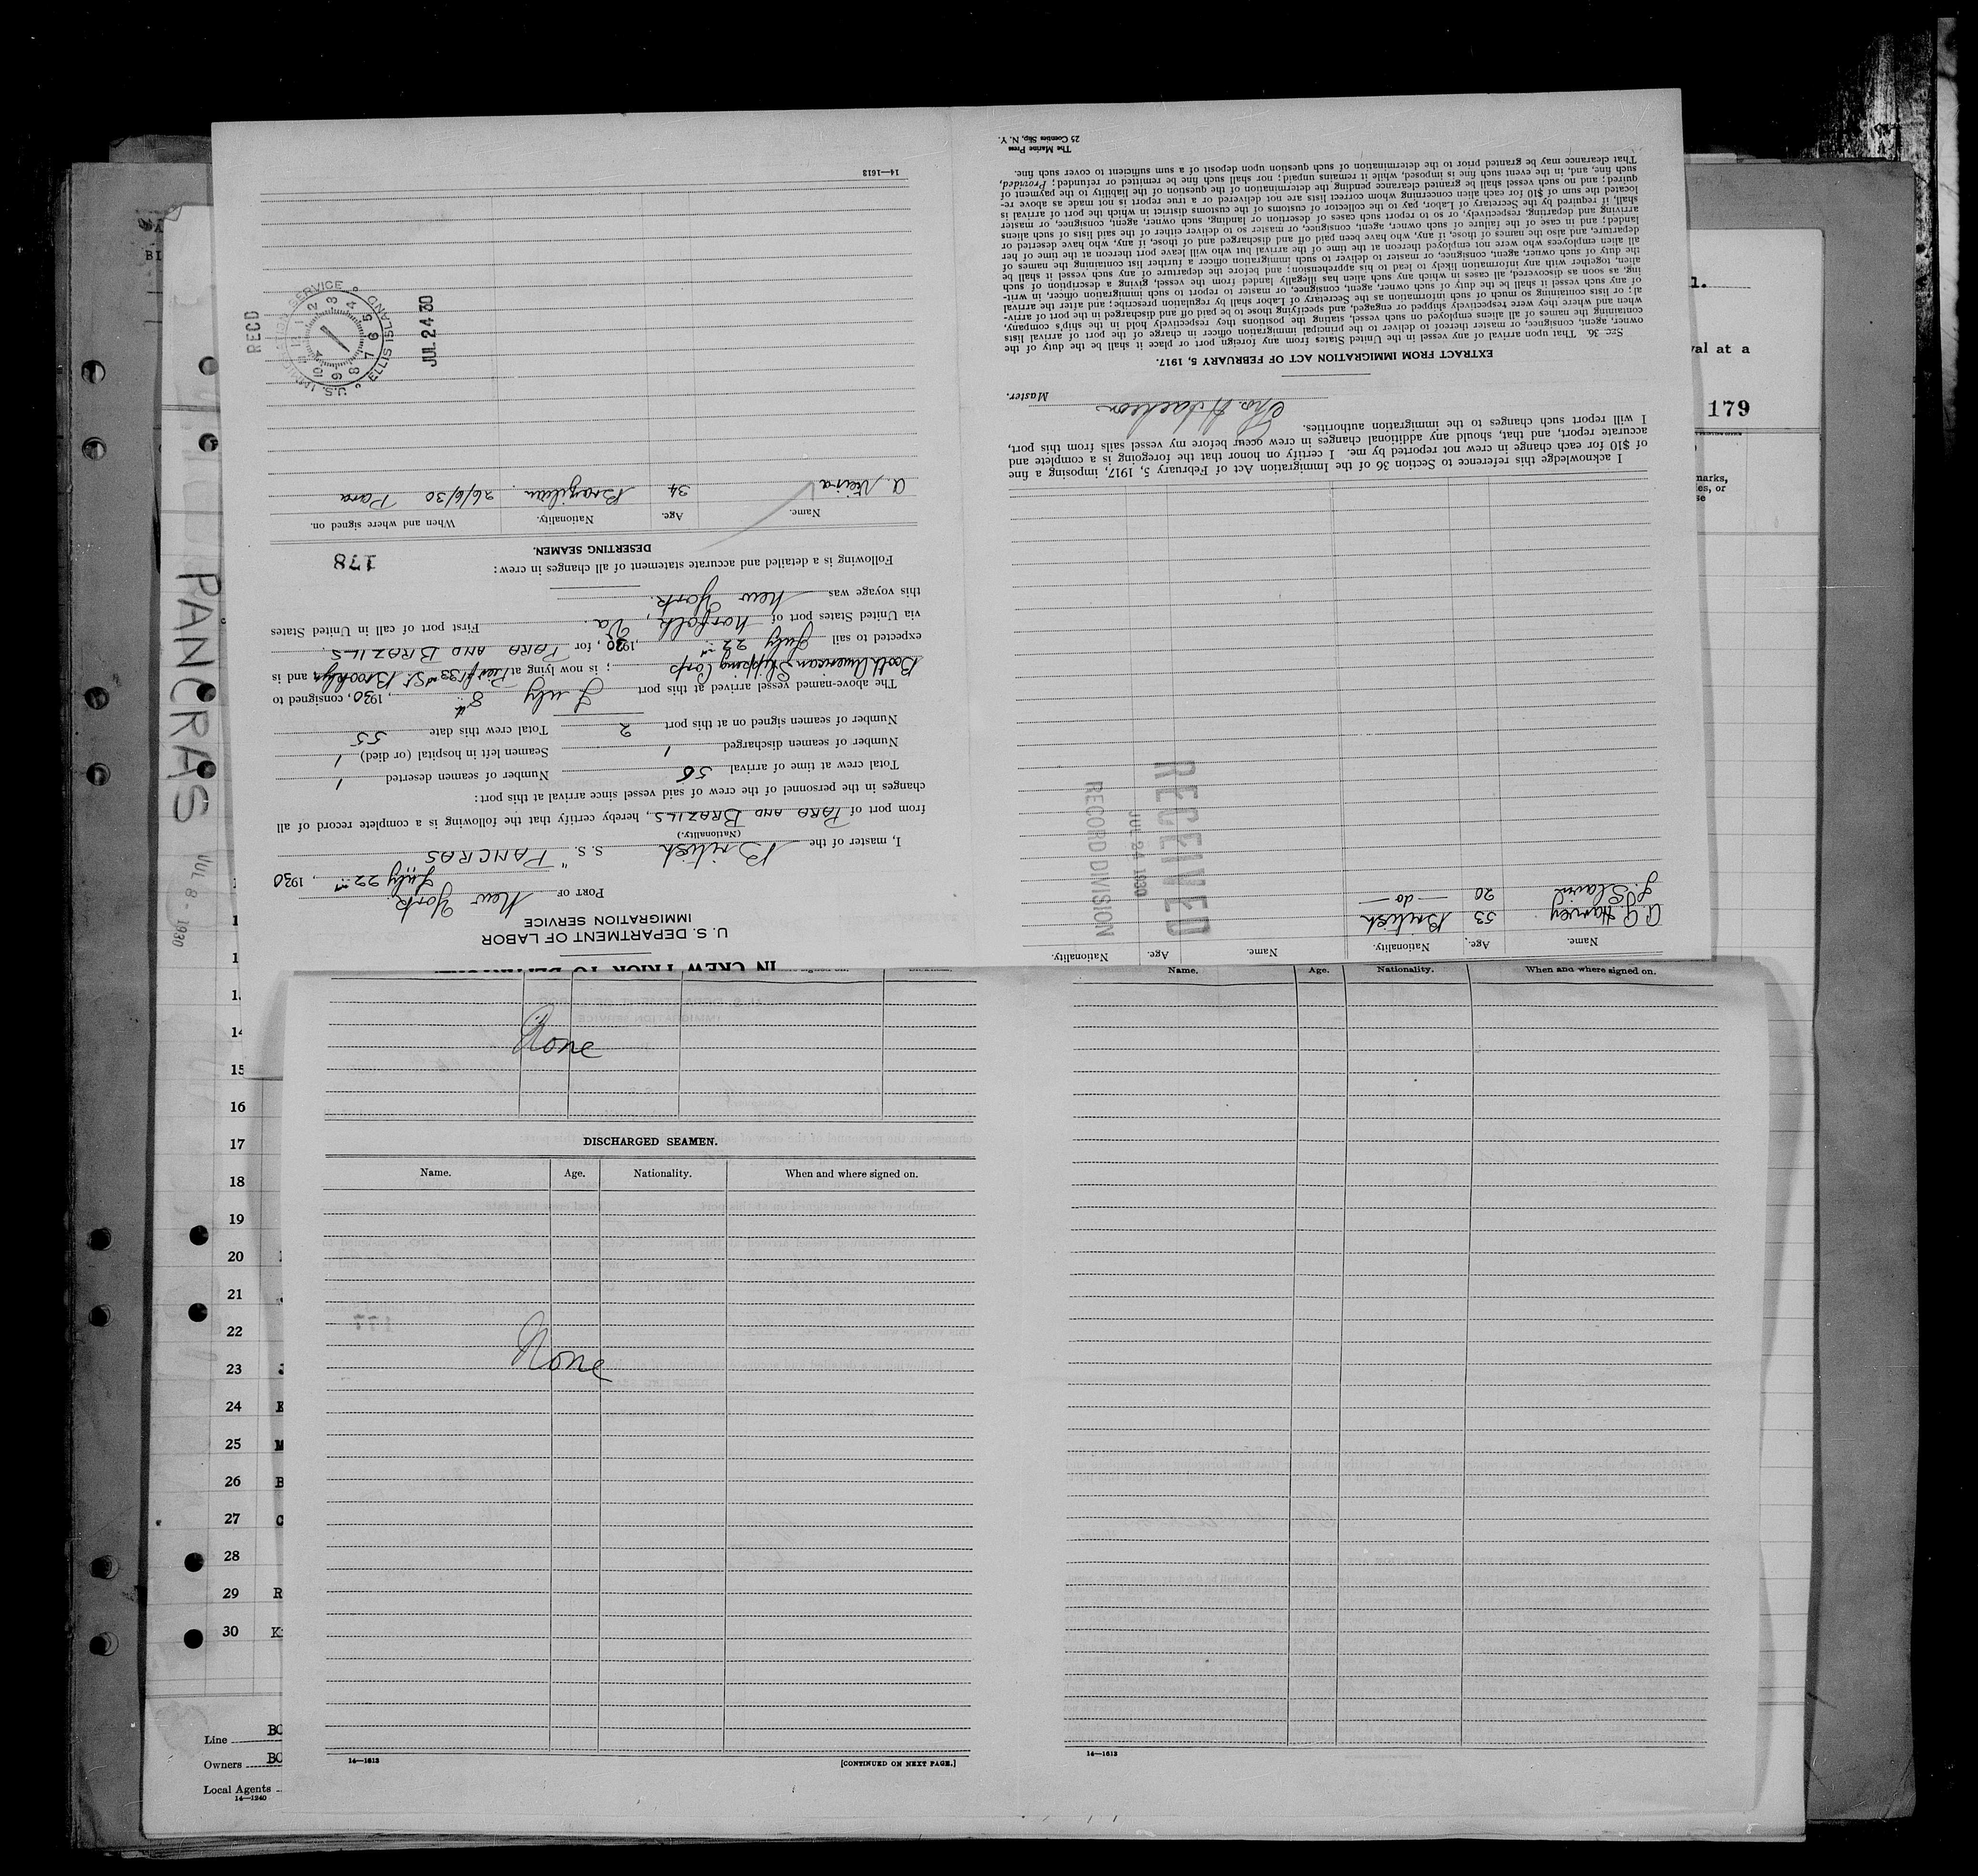 IN CREW PRIOR TO
U. S. DEPARTMENT OF LABOR
IMMIGRATION SERVICE
PORT OF New York
July 22nd, 1930
I, master of the British S. S. "PANCRAS
(Nationality.)
from port of PARA AND BRAZILS, hereby certify that the following is a complete record of all
changes in the personnel of the crew of said vessel since arrival at this port:
Total crew at time of arrival 56 Number of seamen deserted 1
Number of seamen discharged 1 Seamen left in hospital (or died) 1
Number of seamen signed on at this port 2 Total crew this date 55
The above-named vessel arrived at this port July 8th, 1930, consigned to
Booth American Shipping Corp; is now lying at Pier 1 33rd St. Brooklyn and is
expected to sail July 22nd, 1930, for PARA AND BRAZILS.
via United States port of Norfolk, Va. First port of call in United States
this voyage was New York.
Following is a detailed and accurate statement of all changes in crew:
178
DESERTING SEAMEN.
Name. Age. Nationality. When and where signed on.
A. Vieira 34 Brazilian. 26/6/30 Para
RECD
U.S. IMMIGRATION SERVICE ELLIS ISLAND
1 2 3 4 5 6 7 8 9 10 11 12
JUL 24 30
14—1613
Name. Age. Nationality. Name. Age. Nationality.
A. G. Harvey 53 British
J. Slavin 20 — do —
RECEIVED
JUL 24 1930
RECORD DIVISION
I acknowledge this reference to Section 36 of the Immigration Act of February 5, 1917, imposing a fine
of $10 for each change in crew not reported by me. I certify on honor that the foregoing is a complete and
accurate report, and that, should any additional changes in crew occur before my vessel sails from this port,
I will report such changes to the immigration authorities.
Master.
EXTRACT FROM IMMIGRATION ACT OF FEBRUARY 5, 1917.
SEC. 36. That upon arrival of any vessel in the United States from any foreign port or place it shall be the duty of the
owner, agent, consignee, or master thereof to deliver to the principal immigration officer in charge of the port of arrival lists
containing the names of all aliens employed on such vessel, stating the positions they respectively hold in the ship's company,
when and where they were respectively shipped or engaged, and specifying those to be paid off and discharged in the port of arriv-
al; or lists containing so much of such information as the Secretary of Labor shall by regulation prescribe; and after the arrival
of any such vessel it shall be the duty of such owner, agent, consignee, or master to report to such immigration officer, in writ-
ing, as soon as discovered, all cases in which any such alien has illegally landed from the vessel, giving a description of such
alien, together with any information likely to lead to his apprehension; and before the departure of any such vessel it shall be
the duty of such owner, agent, consignee, or master to deliver to such immigration officer a further list containing the names of
all alien employees who were not employed thereon at the time of the arrival but who will leave port thereon at the time of her
departure, and also the names of those, if any, who have been paid off and discharged and of those, if any, who have deserted or
landed; and in case of the failure of such owner, agent, consignee, or master so to deliver either of the said lists of such aliens
arriving and departing, respectively, or so to report such cases of desertion or landing, such owner, agent, consignee, or master
shall, if required by the Secretary of Labor, pay to the collector of customs of the customs district in which the port of arrival is
located the sum of $10 for each alien concerning whom correct lists are not delivered or a true report is not made as above re-
quired; and no such vessel shall be granted clearance pending the determination of the question of the liability to the payment of
such fine, and, in the event such fine is imposed, while it remains unpaid; nor shall such fine be remitted or refunded; Provided,
That clearance may be granted prior to the determination of such question upon deposit of a sum sufficient to cover such fine.
The Marine Press
25 Coenties Slip, N. Y.
PANCRAS
JUL 8 - 1930
val at a
179
marks,
es, or
se
None
DISCHARGED SEAMEN.
Name. Age. Nationality. When and where signed on.
None
14—1613
[CONTINUED ON NEXT PAGE.]
Name. Age. Nationality. When and where signed on.
14—1613
177
14
15
16
17
18
19
20
21
22
23
24
25
26
27
28
29
30
Line BO
Owners BO
Local Agents
14—1240